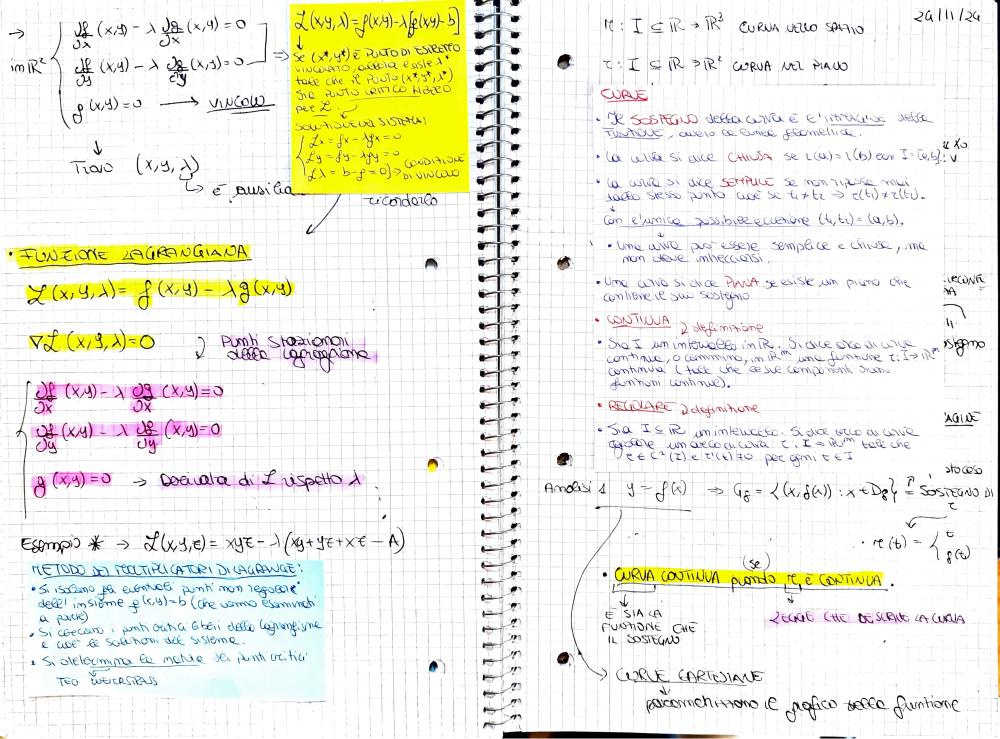 → ∂f/∂x (x,y) - λ ∂g/∂x (x,y) = 0
in ℝ² ∂f/∂y (x,y) - λ ∂g/∂y (x,y) = 0 ⇒
g(x,y) = 0 → VINCOLO
↓
TROVO (x,y,λ)
↳ è ausilia
ricordarlo
L(x,y,λ) = f(x,y) - λ[g(x,y) - b]
↓
Se (x*,y*) è PUNTO DI ESTREMO
VINCOLATO, allora esiste λ*
tale che il PUNTO (x*,y*,λ*)
SIA PUNTO CRITICO LIBERO
per L.
↓
SOLUZIONE DEL SISTEMA
Lx = fx - λgx = 0
Ly = fy - λgy = 0
Lλ = b - g = 0 → CONDIZIONE
DI VINCOLO
• FUNZIONE LAGRANGIANA
L(x,y,λ) = f(x,y) - λg(x,y)
∇L(x,y,λ) = 0 punti stazionari
della lagrangiana
∂f/∂x (x,y) - λ ∂g/∂x (x,y) = 0
∂f/∂y (x,y) - λ ∂g/∂y (x,y) = 0
g(x,y) = 0 → Derivata di L rispetto λ
Esempio * → L(x,y,z) = xyz - λ(xy + yz + xz - A)
METODO DEI MOLTIPLICATORI DI LAGRANGE:
• Si isolano gli eventuali punti non regolari
dell'insieme g(x,y) = b (che vanno esaminati
a parte)
• Si cercano i punti critici liberi della lagrangiana
e cioè le soluzioni del sistema.
• Si determina la natura dei punti critici
↓
TEO WEIERSTRASS
24/11/24
r : I ⊆ ℝ → ℝ³ CURVA NELLO SPAZIO
r : I ⊆ ℝ → ℝ² CURVA NEL PIANO
CURVE
• Il SOSTEGNO della curva è l'immagine della
funzione, ovvero la linea geometrica.
• La curva si dice CHIUSA se r(a) = r(b) con I = [a,b].
• La curva si dice SEMPLICE se non ripassa mai
dallo stesso punto cioè se t₁ ≠ t₂ → r(t₁) ≠ r(t₂).
con l'unica possibile eccezione (t₁,t₂) = (a,b).
• Una curva può essere semplice e chiusa, ma
non deve intrecciarsi.
• Una curva si dice PIANA se esiste un piano che
contiene il suo sostegno
• CONTINUA 2 definizione
• Sia I un intervallo in ℝ. Si dice arco di curva
continua, o cammino, in ℝᵐ una funzione r: I → ℝᵐ
continua (tale che le sue componenti siano
funzioni continue).
• REGOLARE 2 definizione
• Sia I ⊆ ℝ un intervallo. Si dice arco di curva
regolare un arco di curva r : I → ℝᵐ tale che
r ∈ C¹(I) e r'(t) ≠ 0 per ogni t ∈ I
AGINE
Analisi 1 y = f(x) ⇒ Gf = {(x, f(x)) : x ∈ Df} = SOSTEGNO DI
r
• r(t) = { t
f(t)
(se)
• CURVA CONTINUA quando r è CONTINUA.
E SIA LA
FUNZIONE CHE
IL SOSTEGNO
LEGGE CHE DESCRIVE LA CURVA
→ CURVE CARTESIANE
parametrizzano il grafico della funzione